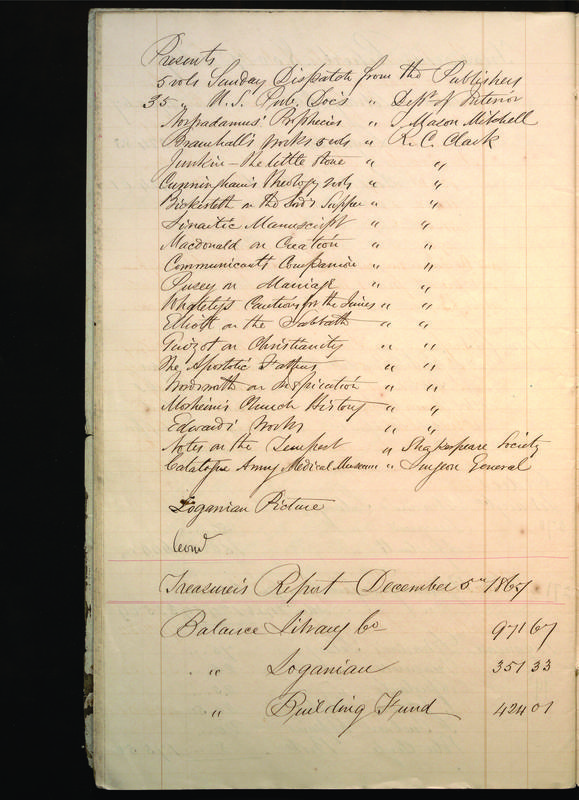 Presents
5 vols Sunday Dispatch from the Publishers
35 " U.S. Pub. Doc's " Dept of Interior
Nospadamus' Prophecies " J Mason Mitchell
Bramhall's works 5 vols " R. C. Clark
Junkin – the little stone " "
Cunningham's Theology vols " "
Bickersteth on the Lord's Supper " "
Sinaitic Manuscript " "
Macdonald on Creation " "
Communicants Companion " "
Pusey on Marriage " "
Whately's Cautions for the Times " "
Elliott on the Sabbath " "
Guizot on Christianity " "
The Apostolic Fathers " "
Wordsworth on Inspiration " "
Mosheim's Church History " "
Edwards' Works " "
Notes on the Tempest " Shakspeare Society
Catalogue Army Medical Museum " Surgeon General
Loganian Picture
Treasurer's Report December 5th 1867
Balance Library Co 971 67
" Loganian 351 33
" Building Fund 424 01